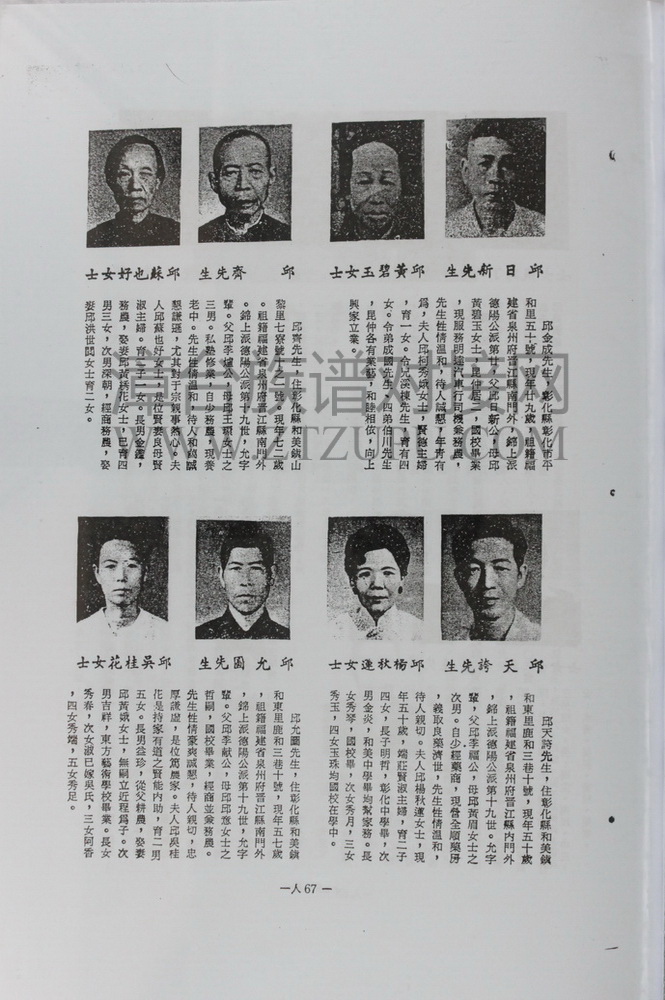 邱日新先生
邱黃碧玉女士
邱金成先生,彰化縣彰化市平
和里五十號,現年廿九歲,祖籍福
建省泉州府晋江縣南門外,錦上派
德陽公派第廿,父邱日新公,母邱
黃碧玉女士,昆仲居二,國校畢業
,現服務明陸汽車行司機兼務農,
先生性情溫和,待人誠懇,年青有
爲,夫人邱柯秀娥女士,賢德主婦
,育一女。令兄溪棟先生,育有四
女。令弟成國先生,四弟伯川先生
,昆仲各有業藝,和睦相依,向上
興家立業。
邱齊先生
邱蘇也好女士
邱齊先生,住彰化縣和美鎮山
黎里七寮號七之一號。現年七二歲
。祖籍福建省泉州府晋江縣南門外
。錦上派德陽公派第十九世,允字
輩。父邱李爐公,母邱王環女士之
三男。私塾修業,自少務農,現養
老中。先生性情溫和,待人和藹誠
懇謙遜,尤其對于宗親事熱心。夫
人邱蘇也好女士,是位賢妻良母賢
淑主婦。育二子一女。長男金鑑,
務農,娶妻邱黃綉花女士,已育四
男三女,次男深朝,經商務農,娶
妻邱洪世閱女士育二女。
邱天誇先生
邱楊秋蓮女士
邱天誇先生,住彰化縣和美鎮
和東里鹿和三巷十號,現年五十歲
,祖籍福建省泉州府晋江縣內門外
,錦上派德陽公派第十九世。允字
輩,父邱李福公,母邱黃眉女士之
次男。自少經藥商,現營全順藥房
,義取良藥濟世,先生性情溫和,
待人親切。夫人邱楊秋蓮女士,現
年五十歲,端莊賢淑主婦,育二子
女,長子明哲,彰化中學畢,次
男金炎,和美中學畢均幫家務。長
女秀琴,國校畢,次女秀月,三女
秀玉,四女玉珠均國校在學中。
邱允圖先生
邱吳桂花女士
邱允圖先生,住彰化縣和美鎮
和東里鹿和三巷十號,現年五七歲
,祖籍福建省泉州府晋江縣南門外
,錦上派德陽公派第十九世,允字
輩。父邱李献公,母邱邱意女士之
哲嗣,國校畢業,經商並兼務農。
先生性情豪爽誠懇,待人親切,忠
厚謙虛,是位篤農家。夫人邱吳桂
花是持家有道之賢能內助,育二男
五女。長男益珍,從父耕農,娶妻
邱黃娥女士,無嗣立近程爲子。次
男吉祥,東方藝術學校畢業。長女
秀春,次女淑已嫁吳氏,三女阿香
,四女秀端,五女秀足。
—人67—
WWW.ZTZUPU.COM